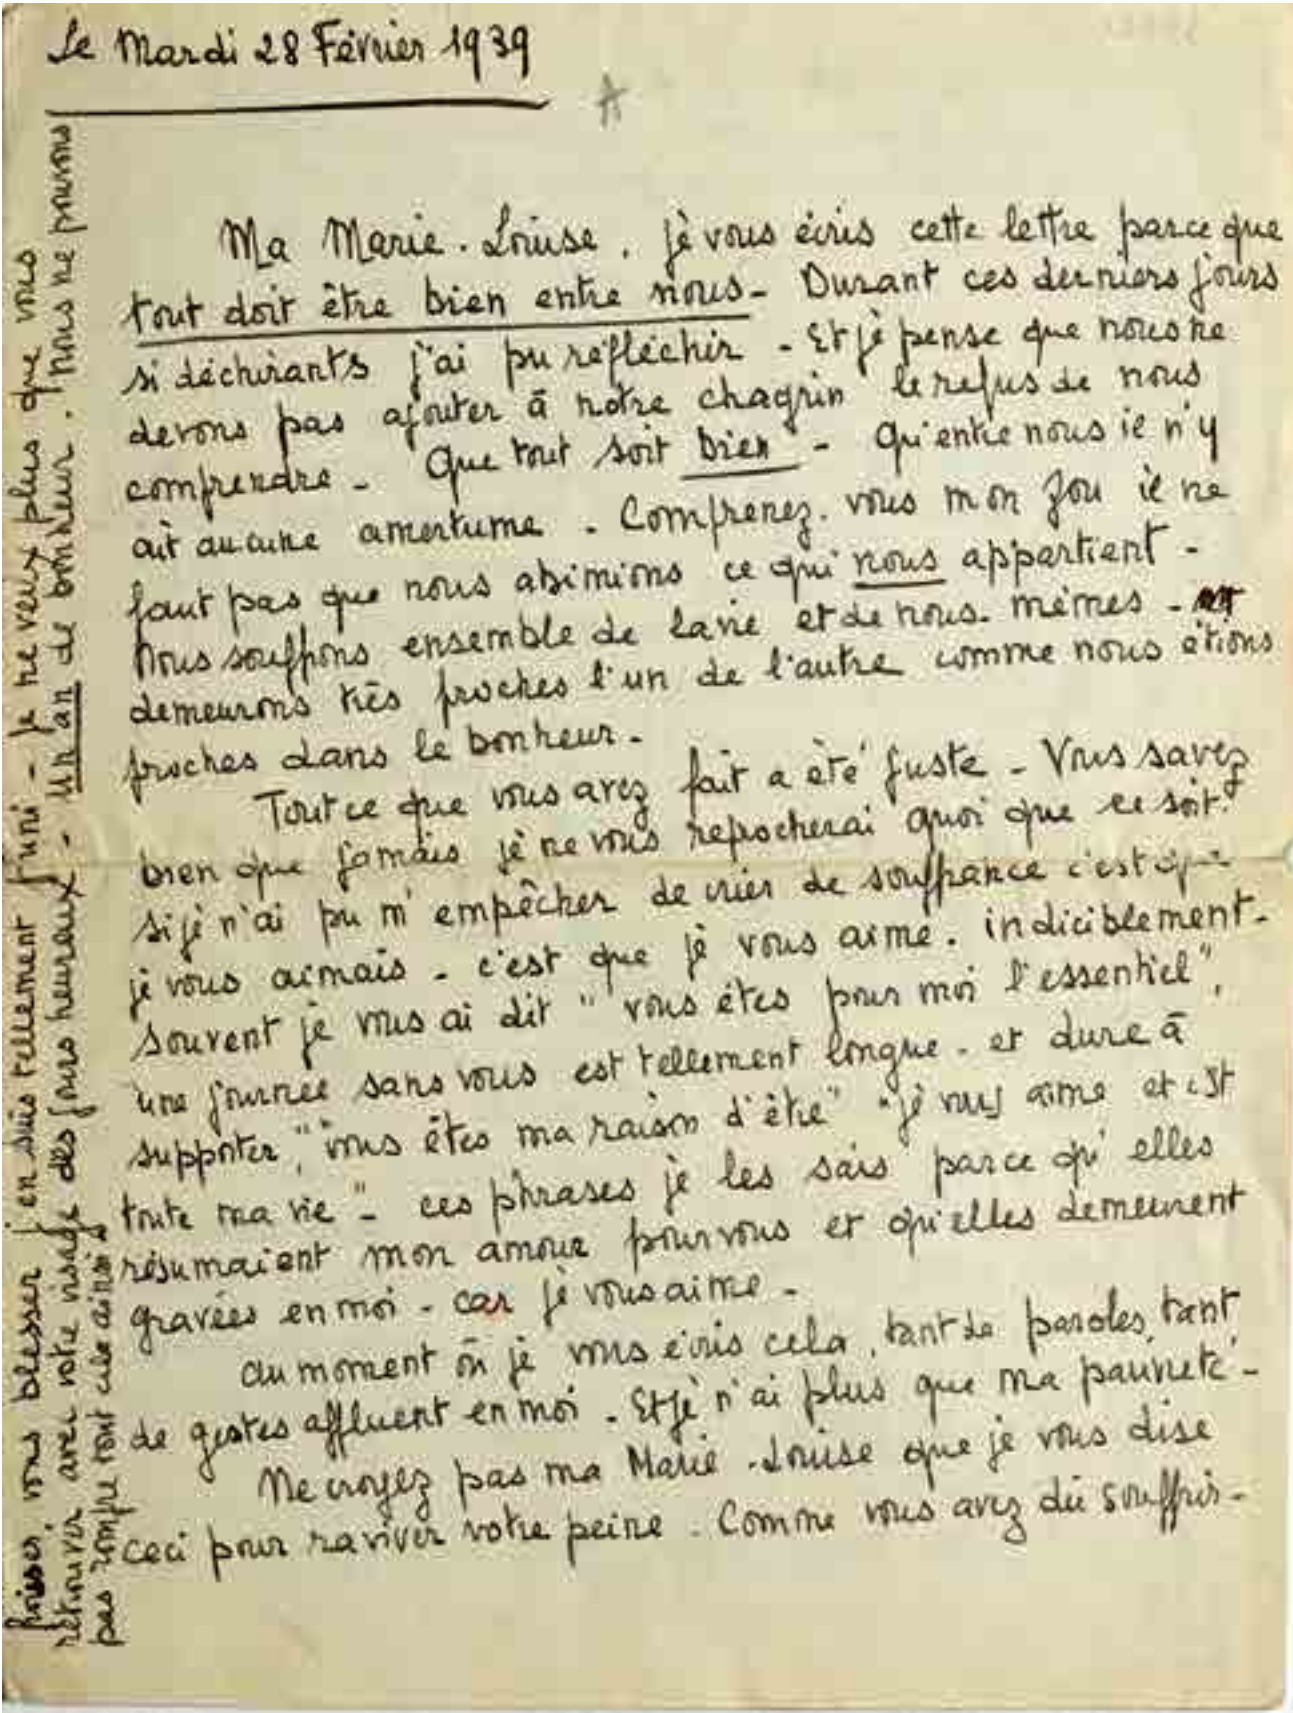 Le Mardi 28 Février 1939
A
Ma Marie. Louise, je vous écris cette lettre parce que
tout doit être bien entre nous - Durant ces derniers jours
si déchirants j'ai pu réfléchir - Et je pense que nous ne
devons pas ajouter à notre chagrin le refus de nous
comprendre - Que tout soit bien - Qu'entre nous il n'y
ait aucune amertume - Comprenez-vous mon Jou il ne
faut pas que nous abimions ce qui nous appartient -
Nous souffrons ensemble de la vie et de nous-mêmes -
demeurons très proches l'un de l'autre comme nous étions
proches dans le bonheur -
Tout ce que vous avez fait a été juste - Vous savez
bien que jamais je ne vous reprocherai quoi que ce soit.
si je n'ai pu m'empêcher de crier de souffrance c'est que
je vous aimais - c'est que je vous aime. indiciblement -
souvent je vous ai dit " vous êtes pour moi l'essentiel",
une journée sans vous est tellement longue - et dure à
supporter", "vous êtes ma raison d'être" "je vous aime et c'est
toute ma vie" - ces phrases je les sais parce qu'elles
résumaient mon amour pour vous et qu'elles demeurent
gravées en moi - car je vous aime -
au moment où je vous écris cela, tant de paroles, tant
de gestes affluent en moi. Et je n'ai plus que ma pauvreté -
Ne croyez pas ma Marie-Louise que je vous dise
ceci pour raviver votre peine. Comme vous avez dû souffrir -
vous blesser j'en suis tellement puni - je ne veux plus que vous
retrouver avec votre visage des jours heureux - un an de bonheur. Nous ne pouvons
pas rompre tout cela ainsi